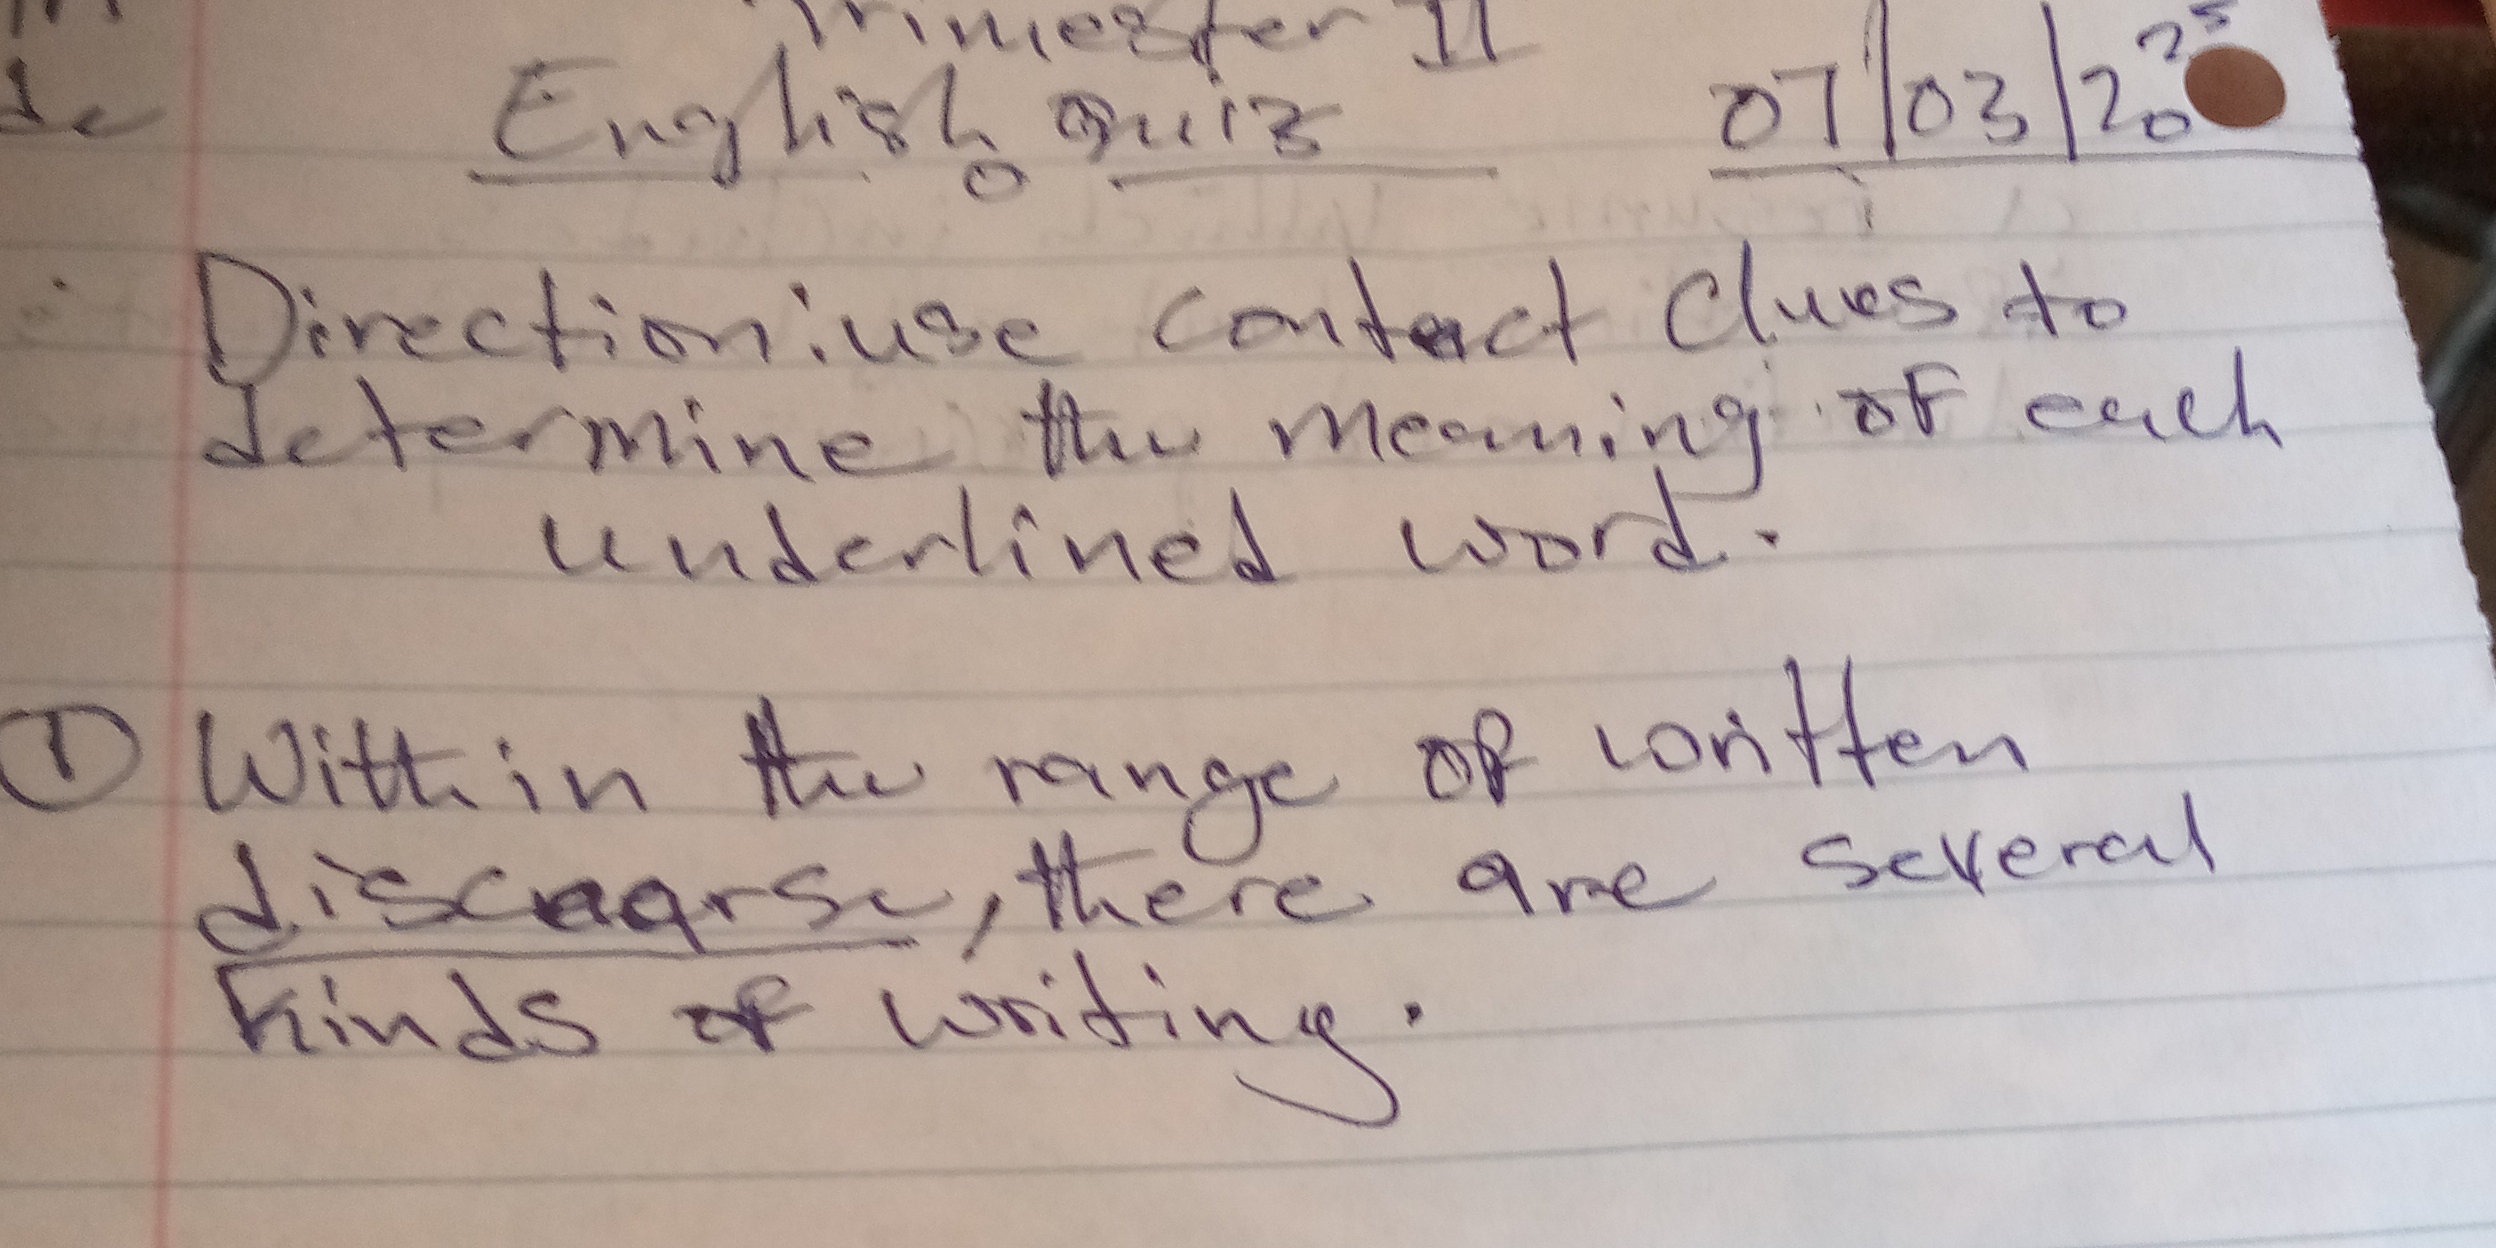 Trimester II
de English Quiz 07/03/2025
Direction: use contact clues to
determine the meaning of each
underlined word.
① Within the range of written
discaarse, there are several
kinds of writing.